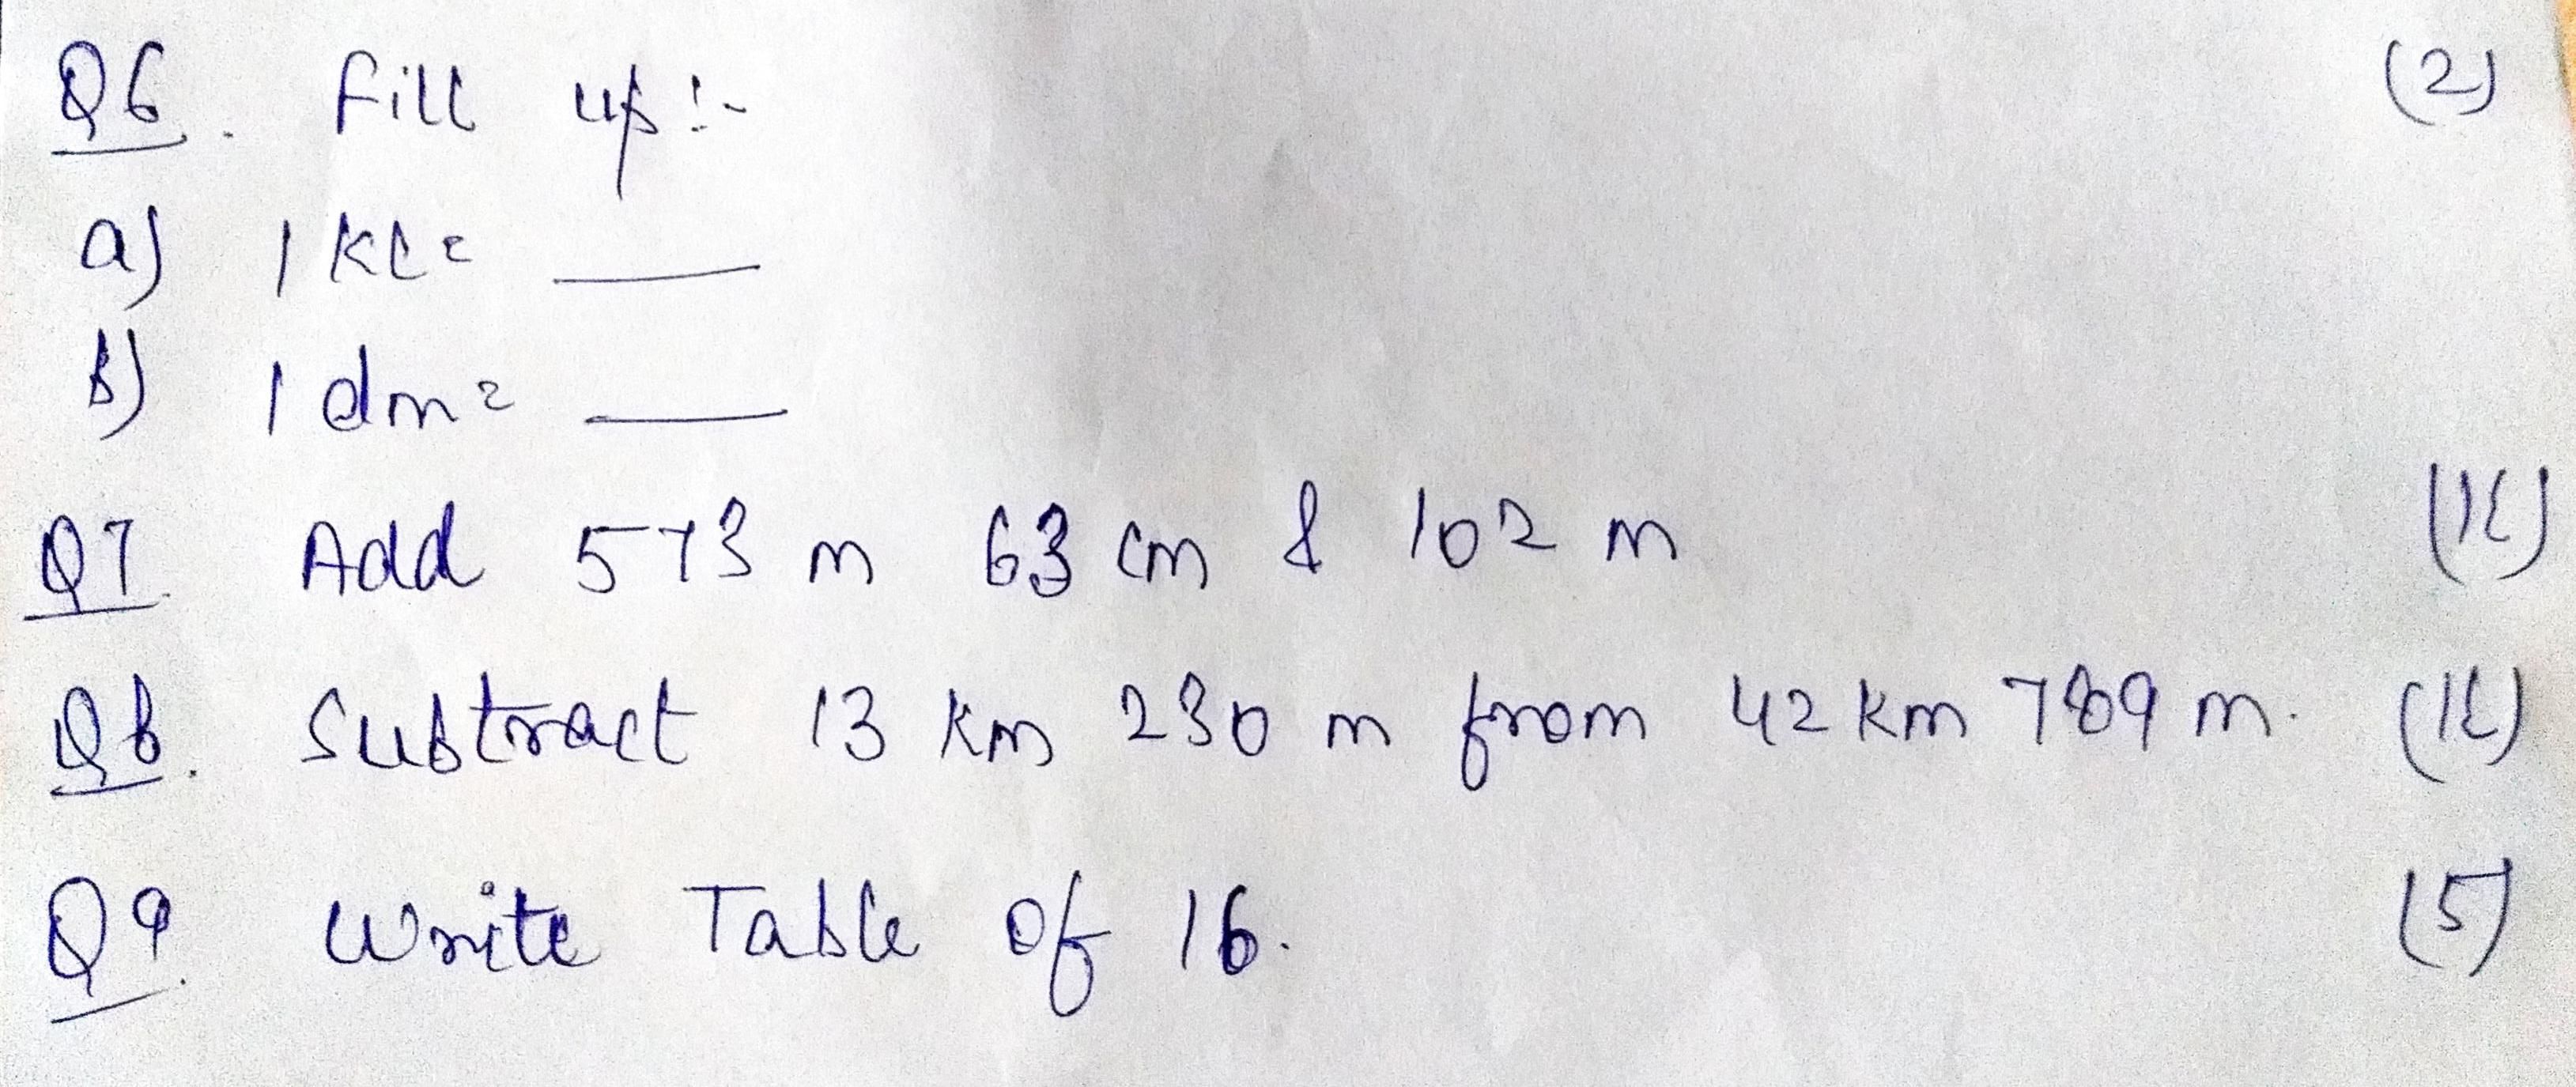 Q6. Fill up :- (2)
a) 1 kl = ____
b) 1 dm = ____
Q7 Add 573 m 63 cm & 102 m
Q8. Subtract 13 Km 230 m from 42 Km 789 m.
Q9. Write Table of 16. (5)